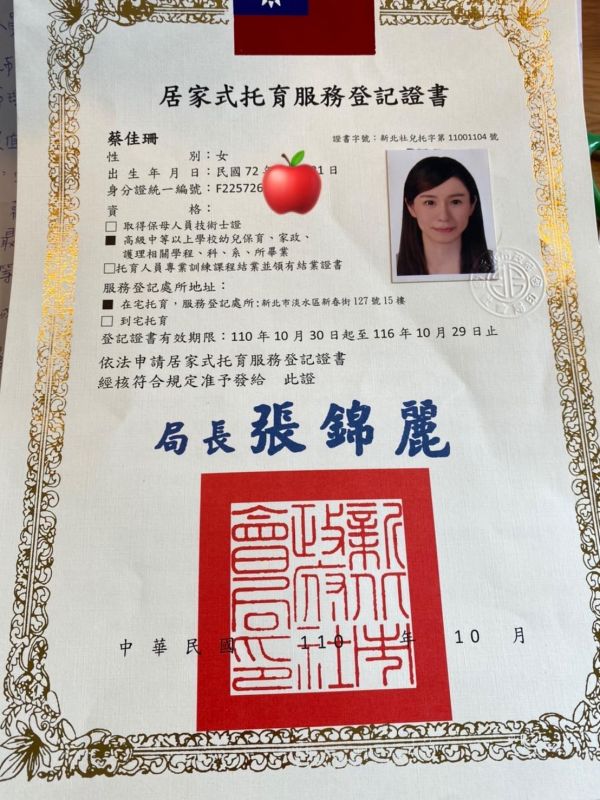 居家式托育服務登記證書
蔡佳珊
證書字號：新北社兒托字第 11001104 號
性別：女
出生年月日：民國 72 年 1日
身分證統一編號：F225726
資格：
□ 取得保母人員技術士證
■ 高級中等以上學校幼兒保育、家政、
護理相關學程、科、系、所畢業
□托育人員專業訓練課程結業並領有結業證書
服務登記處所地址：
■ 在宅托育，服務登記處所：新北市淡水區新春街 127 號 15 樓
□ 到宅托育
登記證書有效期限：110 年 10 月 30 日起至 116 年 10 月 29 日止
依法申請居家式托育服務登記證書
經核符合規定准予發給 此證
局長 張錦麗
新北市政府社會局印
中華民國 110 年 10 月